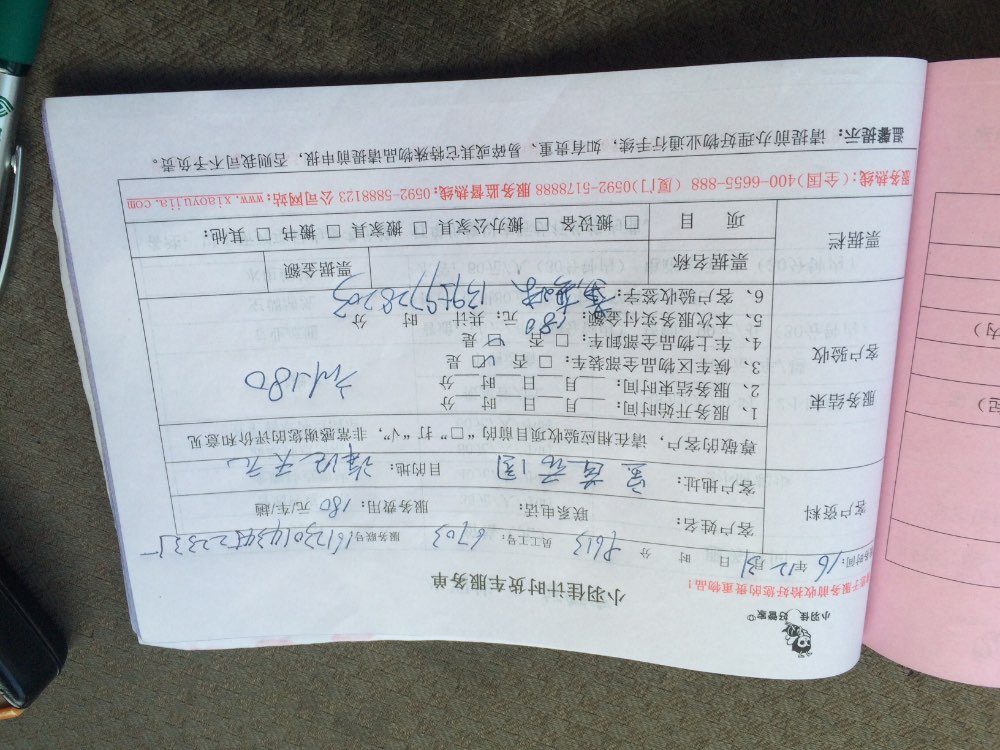 小羽佳 好管家
小羽佳计时货车服务单
请于服务前收拾好您的贵重物品！
服务时间：16年12月31日 时 分 员工工号：6703 服务账号
客户资料
客户姓名： 联系电话： 服务费用：180元/车/趟
客户地址： 目的地：
服务结束
客户验收
尊敬的客户，请在相应验收项目前的“□”打“√”，非常感谢您的评价和意见
1、服务开始时间： 月 日 时 分
2、服务结束时间： 月 日 时 分
3、候车区物品全部装车：□ 否 □ 是
4、车上物品全部卸车：□ 否 □ 是
5、本次服务实付金额：180 元；共计： 时 分
6、客户验收签字：
180
票据栏
票据名称 票据金额
项 目 □ 搬设备 □ 搬办公家具 □ 搬家具 □ 搬书 □ 其他：
服务热线：(全国)400-6655-888 (厦门)0592-5178888 服务监督热线：0592-5888123 公司网站：www.xiaoyujia.com
温馨提示：请提前办理好物业通行手续，如有贵重、易碎或其它特殊物品请提前申报，否则我司不予负责。
内)
起)